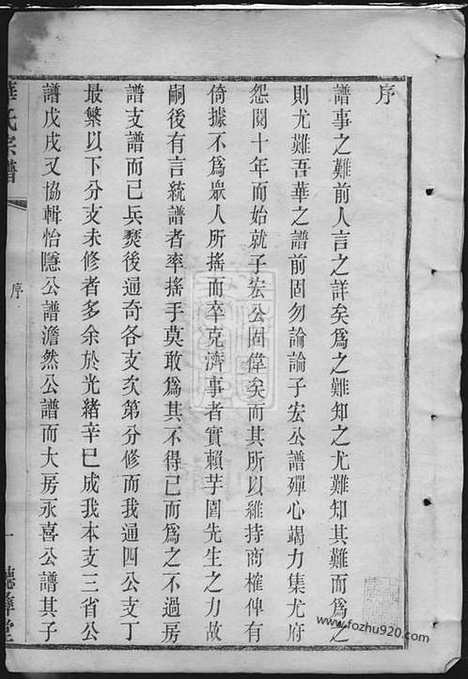 序
譜事之難前人言之詳矣為之難知之尤難知其難而為之
則尤難吾華之譜前固勿論論子宏公譜殫心竭力集尤府
怨閱十年而始就子宏公固偉矣而其所以維持商榷俾有
倚據不為眾人所搖而卒克濟事者實賴芋園先生之力故
嗣後有言統譜者率搖手莫敢為其不得已而為之不過房
譜支譜而已兵燹後通奇各支次第分修而我通四公支丁
最繁以下分支未修者多余於光緒辛巳成我本支三省公
譜戊戌又協輯怡隱公譜澹然公譜而大房永喜公譜其子
華氏宗譜
序
一
聽彝堂
www.fozhu920.com